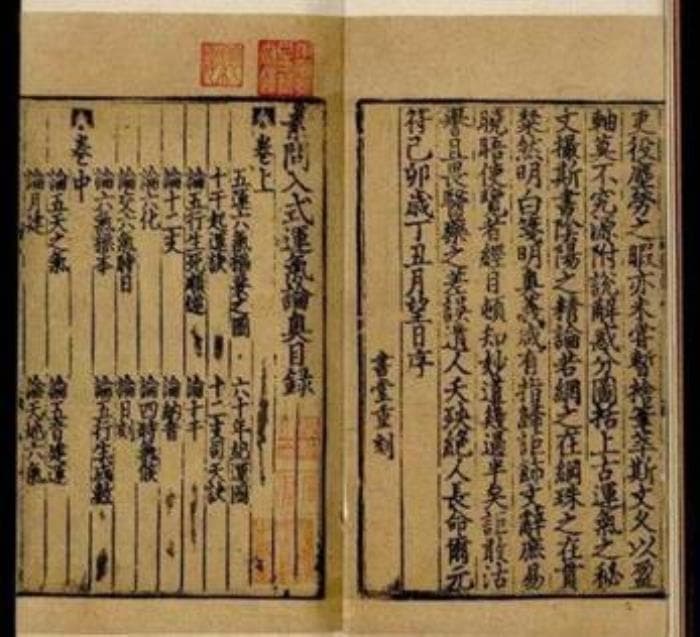 吏役塵勞之暇亦未嘗暫捨斯文久以盈
軸莫不究源附說解惑分圖括上古運氣之秘
文撮斯書陰陽之精論若網之在綱珠之在貫
粲然明白奥義咸有指歸詎飾文辭庶易
曉晤使覽者經目頓知妙道幾過半矣詎敢沽
譽且畏醫藥之差誤遺人夭殃絕人長命爾元
符己卯歲丁丑月望日序
書堂重刻
素問入式運氣論奥目錄
卷上
五運六氣樞要之圖 六十年紀運圖
十干起運訣 十二支司天訣
論五行生死順逆 論十干
論十二支 論納音
論六化 論四時氣候
論交六氣時日 論日刻
論六氣標本 論五行生成數
卷中
論五天之氣 論五音建運
論月建 論天地六氣